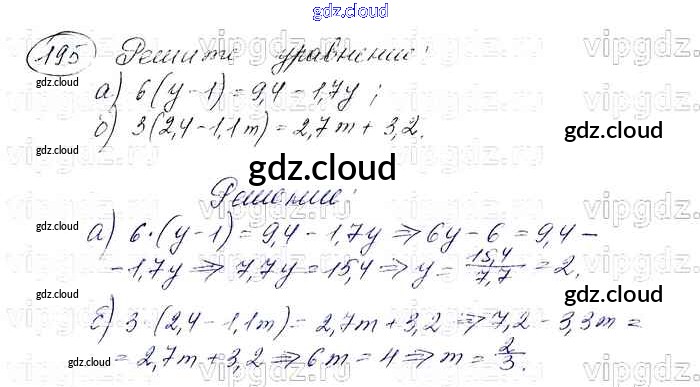 gdz.cloud
195 Решите уравнение:
gdz.cloud
а) 6(y-1)=9,4-1,7y;
б) 3(2,4-1,1m)=2,7m+3,2.
gdz.cloud
gdz.cloud
gdz.cloud
Решение:
gdz.cloud
а) 6·(y-1)=9,4-1,7y⇒6y-6=9,4-
-1,7y⇒7,7y=15,4⇒y=15,4/7,7=2.
gdz.cloud
gdz.cloud
б) 3·(2,4-1,1m)=2,7m+3,2⇒7,2-3,3m=
=2,7m+3,2⇒6m=4⇒m=2/3.
gdz.cloud
gdz.cloud
vipgdz